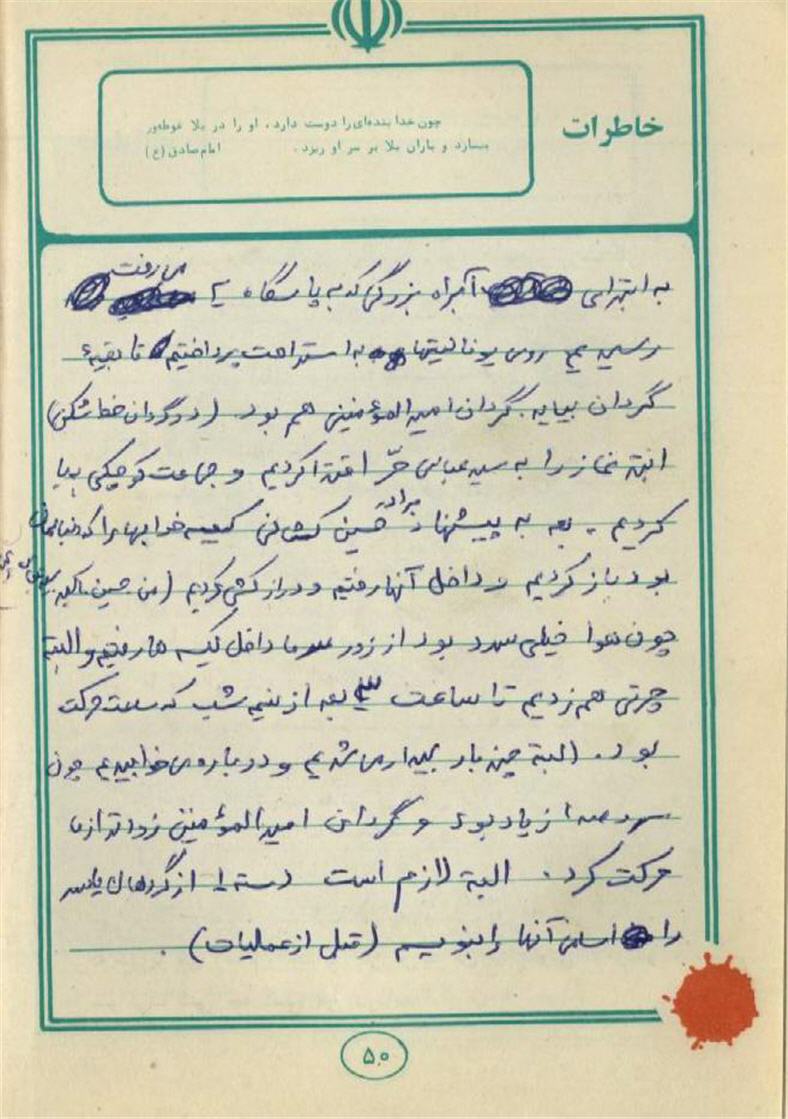 خاطرات
چون خدا بنده‌ای را دوست دارد، او را در بلا غوطه‌ور
میسازد و باران بلا بر سر او ریزد. امام صادق (ع)
به ابتدای آبراه بزرگی که به پاسگاه می رفت
رسیدیم روی یونالیتها به استراحت پرداختیم تا بقیهٔ
گردان بیاید. گردان امیرالمؤمنین هم بود. (دو گردان خط شکن)
البته نماز را به سید عباس حرّ اقتدا کردیم و جماعت کوچکی بپا
کردیم. بعد به پیشنهاد برادر حسین کیسه خوابها را که دنبالمان
بود باز کردیم و داخل آنها رفتیم و دراز کشی کردیم (من حسین با کیسه
چون هوا خیلی سرد بود از زور سرما داخل کیسه ها رفتیم و البته
چرتی هم زدیم تا ساعت بعد از نیم شب که ساعت حرکت
بود. (البته چند بار بیدار می شدیم و دوباره می خوابیدیم چون
سر و صدا زیاد بود و گردان امیرالمؤمنین زودتر از ما
حرکت کرد. البته لازم است دسته ۱ از گروهان یاسر
را اسامی آنها را بنویسم (قبل از عملیات).
۵۰